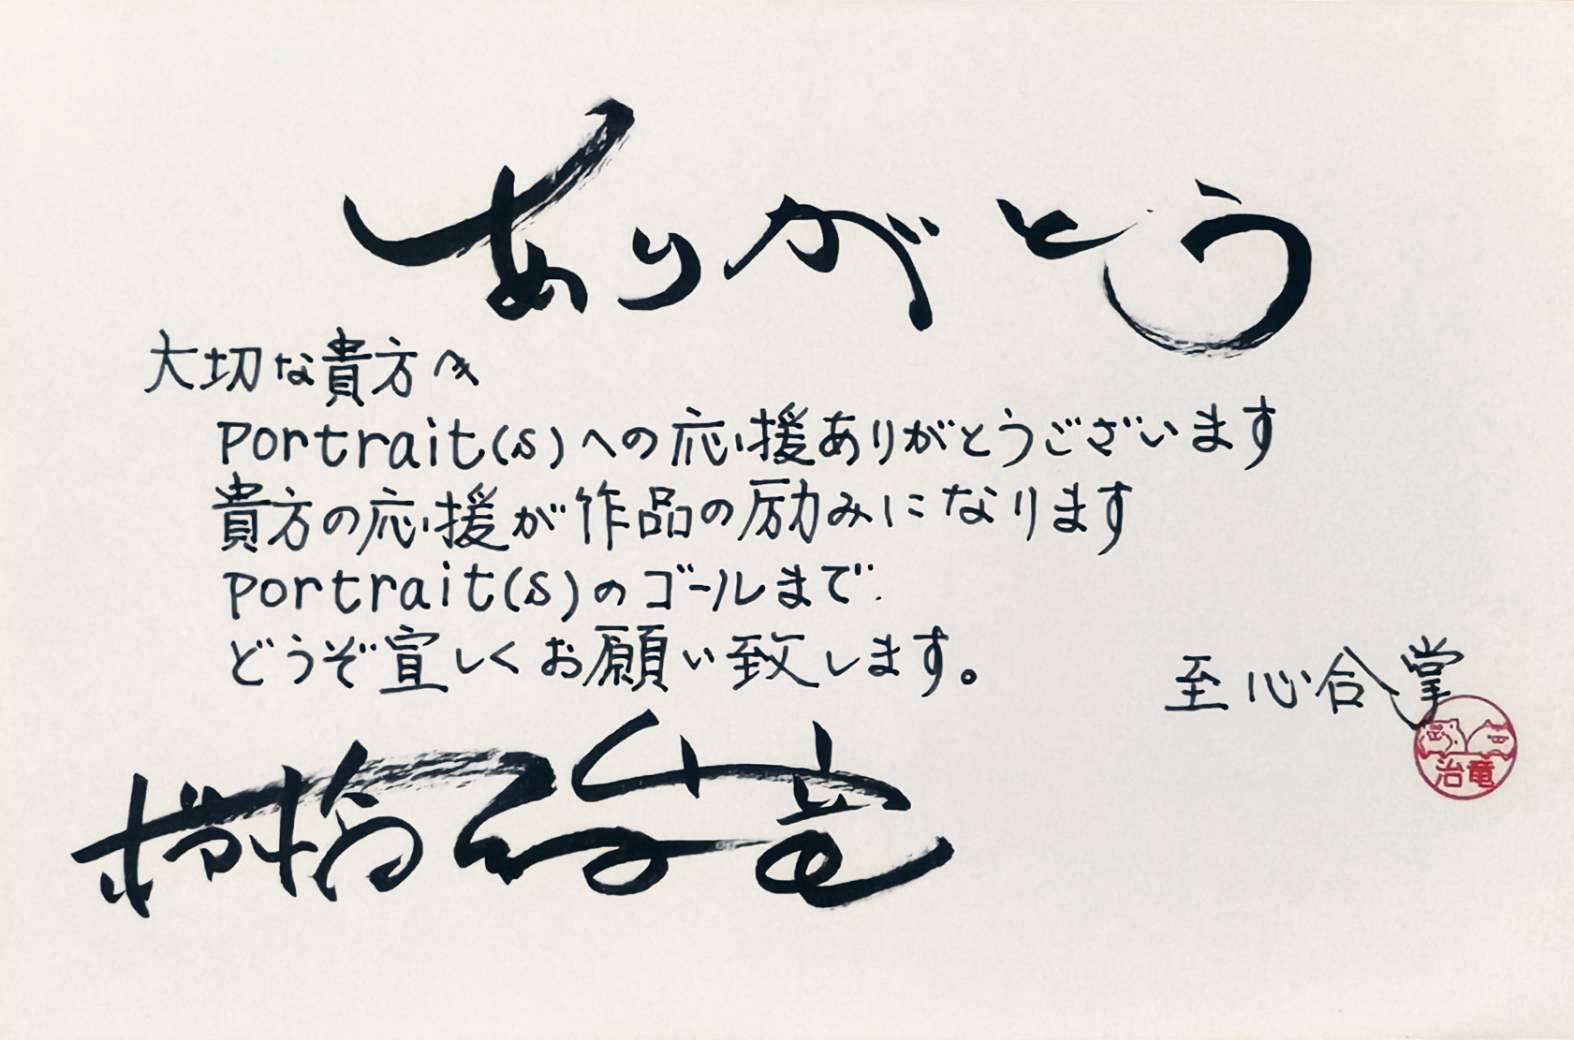 ありがとう
大切な貴方へ
Portrait(s)への応援ありがとうございます
貴方の応援が作品の励みになります
Portrait(s)のゴールまで
どうぞ宜しくお願い致します。
至心合掌
治竜